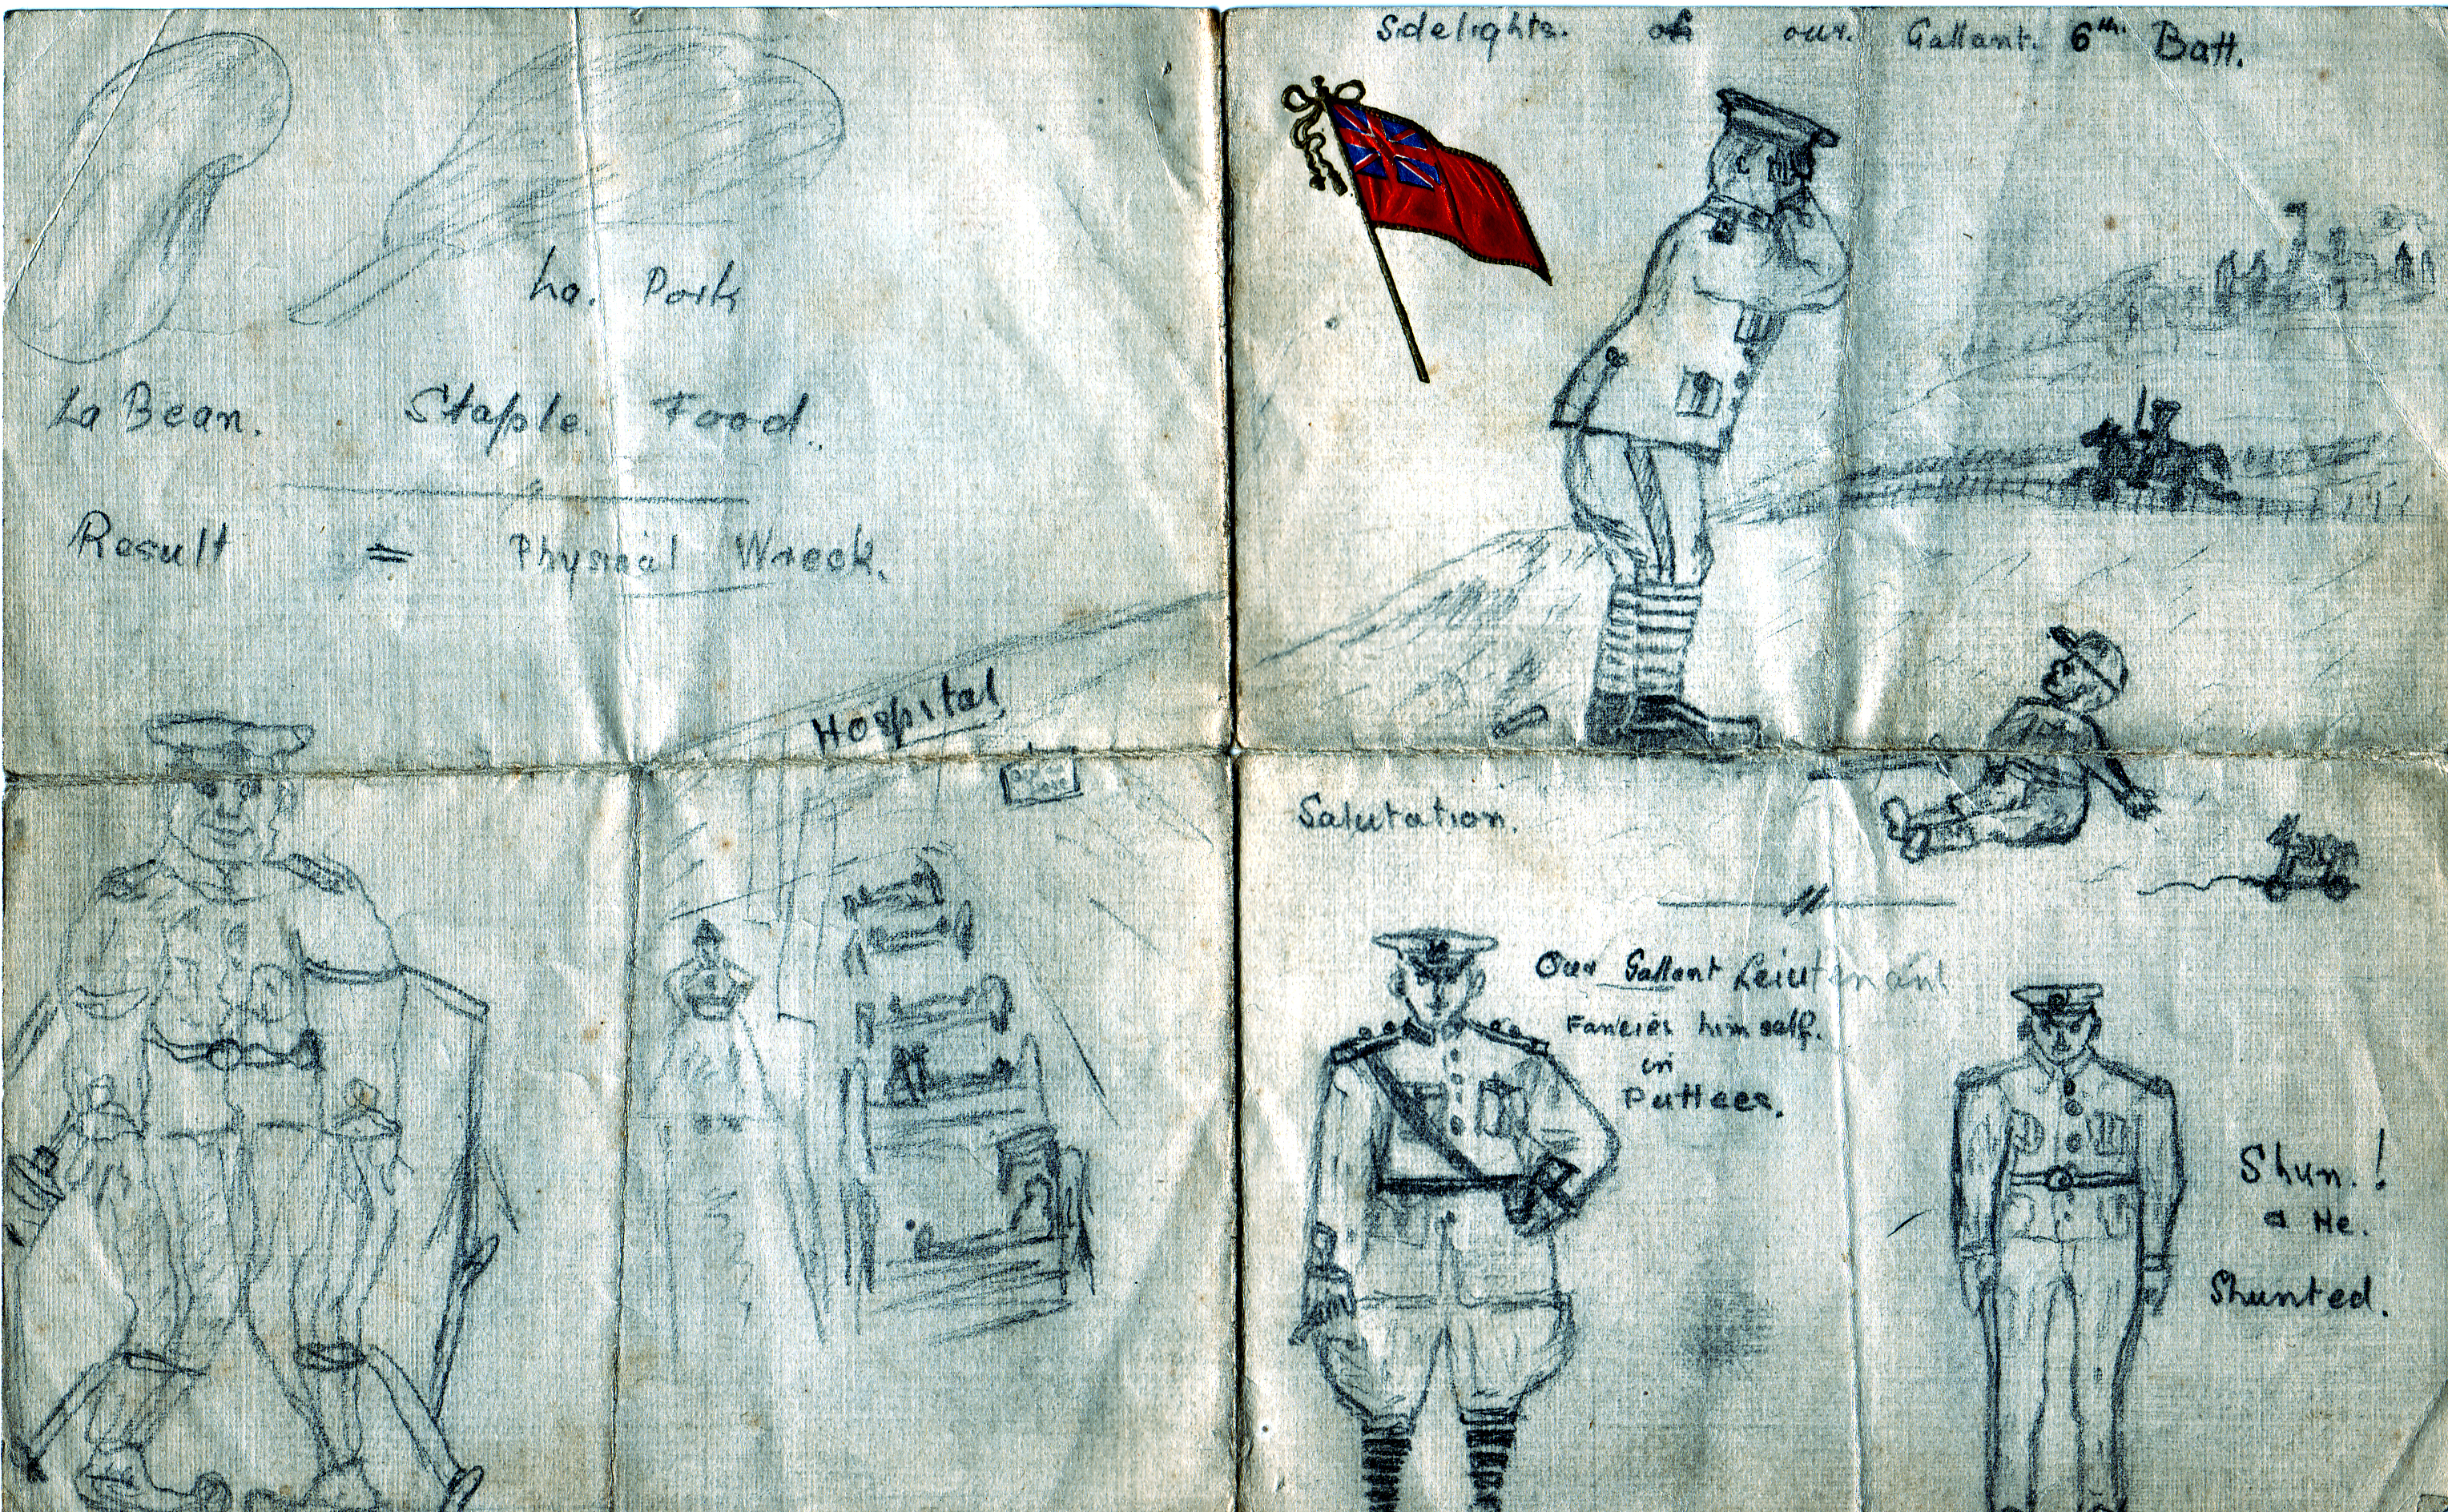 Sidelights. of our. Gallant. 6th. Batt.
La. Pork
La Bean. Staple. Food.
Result = Physical Wreck.
Hospital
Salutation.
Our Gallant Leiutenant
Fancies him self.
in
Puttees.
Shun. !
a He.
Shunted.